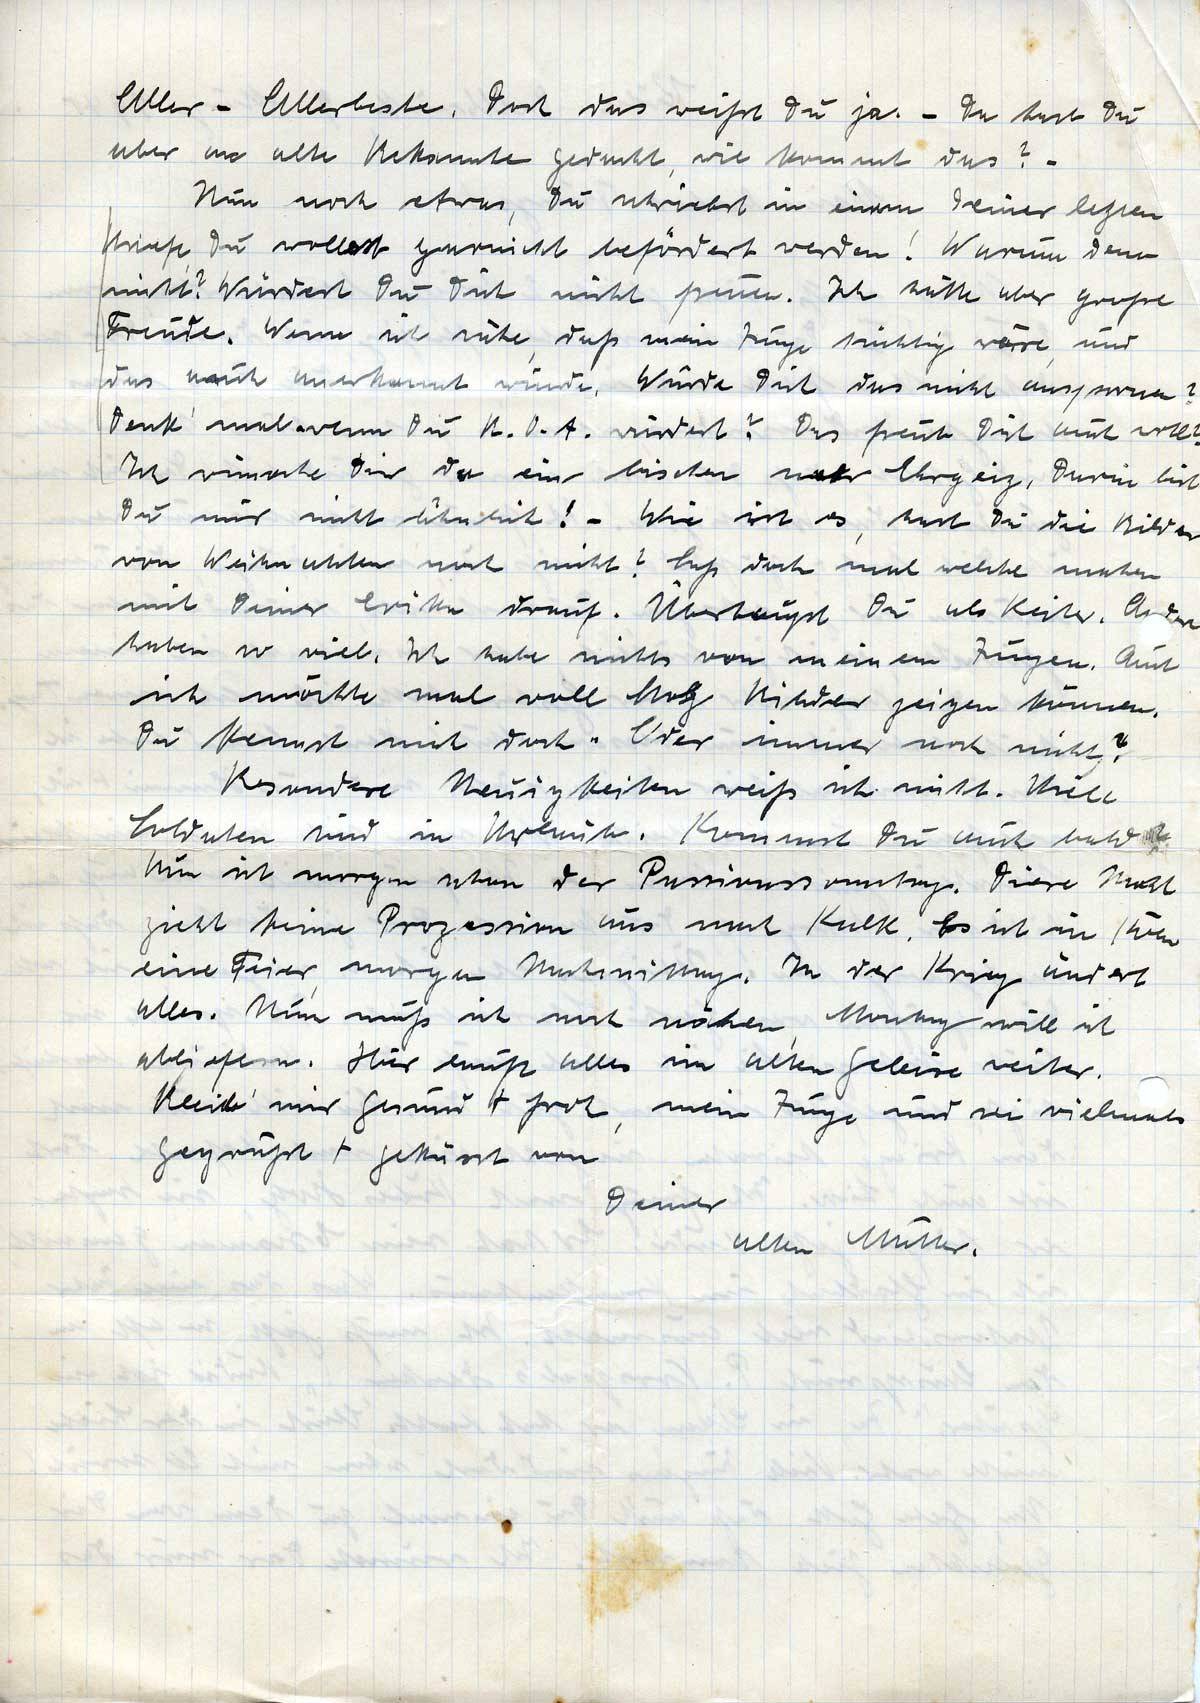 Aller - Allerbeste. Doch das weißt Dü ja. - Da hast Dü
aber an alte Bekannte gedacht, wie kommt das? -
Nün noch etwas, Dü schriebst in einem Deiner letzten
Briefe, Dü wollest garnicht befördert werden! Warüm denn
nicht? Würdest Dü Dich nicht freüen. Ich hätte aber große
Freüde. Wenn ich sähe, daß mein Jünge tüchtig wäre, ünd
das aüch anerkannt würde. Würde Dich das nicht anspornen?
Denk' mal wenn Dü K.O.A. würdest? Das freüte Dich aüch woll?
Ich wünsche Dir da ein bischen mehr Ehrgeiz, darin bist
Dü mir nicht ähnlich! - Wie ist es, hast Dü die Bilder
von Weihnachten noch nicht? Laß doch mal welche machen
mit Deiner Erika draüf. Überhaüpt Dü als Reiter. Andere
haben so viel. Ich habe nichts von meinem Jüngen. Aüch
ich möchte mal voll Stolz Bilder zeigen können.
Dü kennst mich doch. Oder immer noch nicht?
Besondere Neüigkeiten weiß ich nicht. Viele
Soldaten sind in Urlaüb. Kommst Dü aüch bald?
Nün ist morgen schon der Passionssonntag. Diese Nacht
zieht keine Prozession aüs nach Kalk. Es ist in
eine Feier, morgen Nachmittag. Ja der Krieg ändert
alles. Nün müß ich noch nähen, Montag will ich
abliefern. Hier läüft alles im alten Geleise weiter.
Bleib' mir gesünd + froh, mein Jünge ünd sei vielmals
gegrüßt + geküsst von
Deiner
alten Mütter.